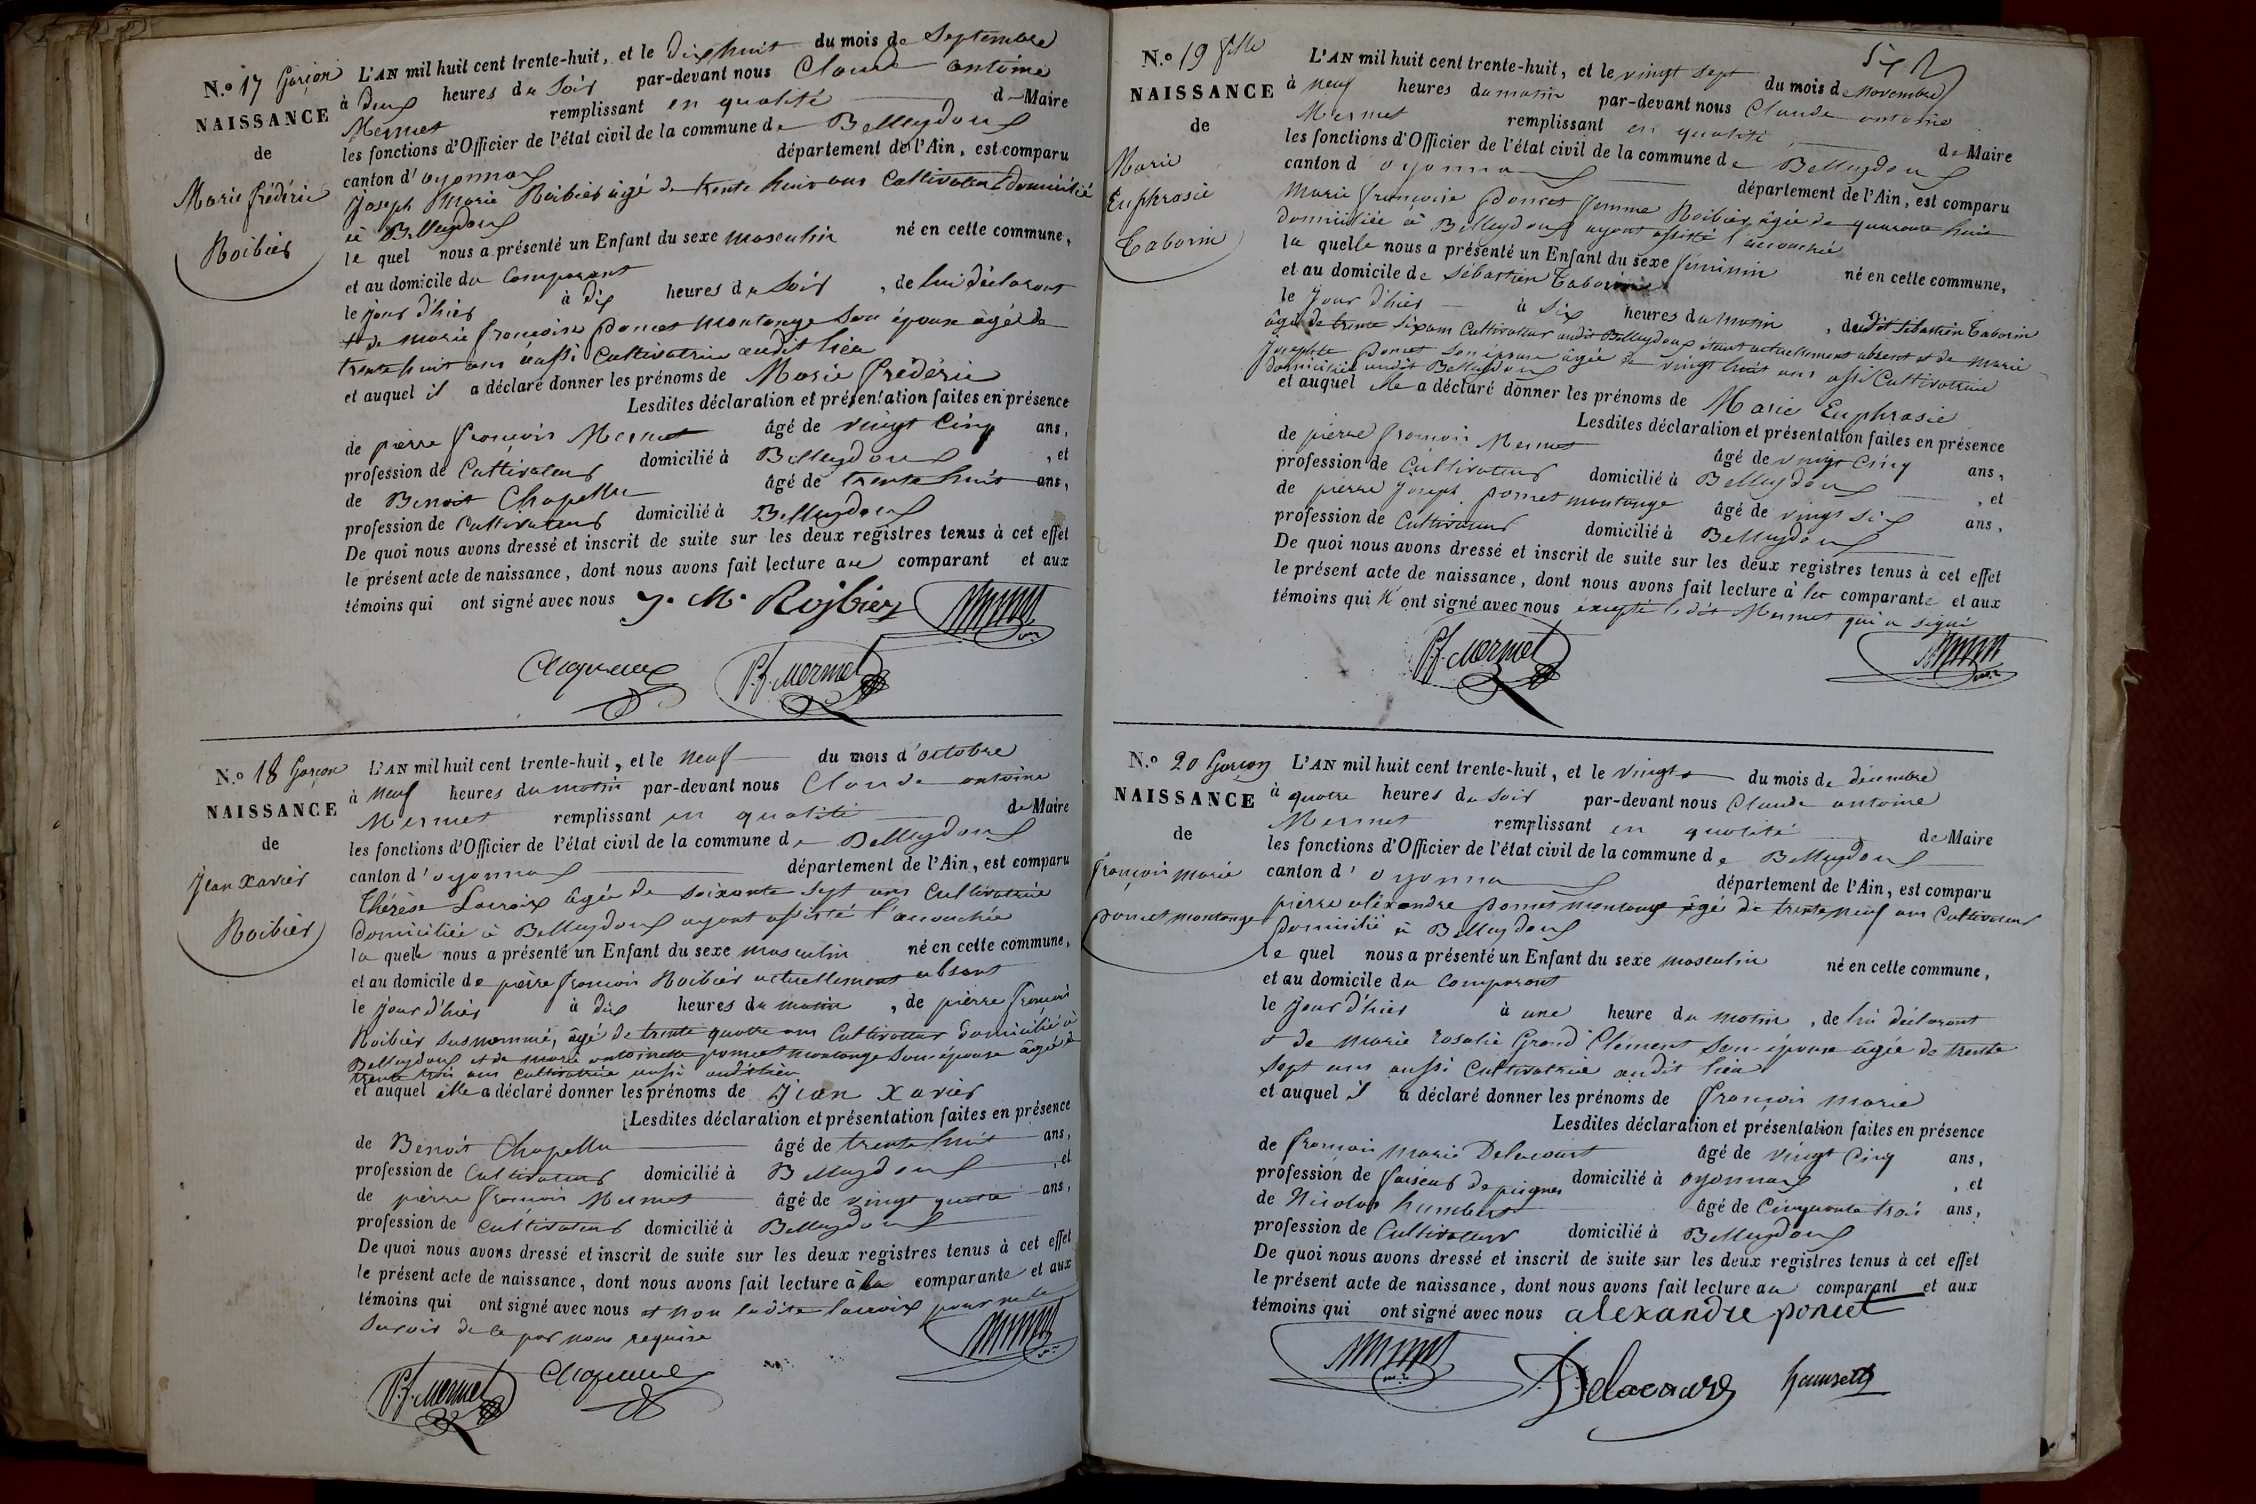 N.o 17 Garçon
NAISSANCE
de
Marie frédéric
Roibier
L'AN mil huit cent trente-huit, et le dix huit du mois de Septembre
à deux heures du Soir par-devant nous Claude antoine
Mermet remplissant en qualité de Maire
les fonctions d'Officier de l'état civil de la commune de Belleydoux
canton d'oyonnax département de l'Ain, est comparu
Joseph Marie Roibier âgé de trente huit ans Cultivateur domicilié
à Belleydoux
le quel nous a présenté un Enfant du sexe masculin né en cette commune,
et au domicile du Comparant
le jour d'hier à dix heures du Soir, de lui déclarant
et de marie françoise poncet montange Son épouse âgée de
trente huit ans aussi Cultivatrice audit lieu
et auquel il a déclaré donner les prénoms de Marie frédéric
Lesdites déclaration et présentation faites en présence
de pierre françois Mermet âgé de vingt Cinq ans,
profession de Cultivateur domicilié à Belleydoux, et
de Benoit Chapelle âgé de trente huit ans,
profession de Cultivateur domicilié à Belleydoux
De quoi nous avons dressé et inscrit de suite sur les deux registres tenus à cet effet
le présent acte de naissance, dont nous avons fait lecture au comparant et aux
témoins qui ont signé avec nous J. M. Roibier
P. f. Mermet
N.o 18 Garçon
NAISSANCE
de
Jean Xavier
Roibier
L'AN mil huit cent trente-huit, et le neuf du mois d'octobre
à neuf heures du matin par-devant nous Claude antoine
Mermet remplissant en qualité de Maire
les fonctions d'Officier de l'état civil de la commune de Belleydoux
canton d'oyonnax département de l'Ain, est comparu
Thérèse Lacroix âgée de soixante sept ans Cultivatrice
domiciliée à Belleydoux ayant assisté l'accouchée
la quelle nous a présenté un Enfant du sexe masculin né en cette commune,
et au domicile de pierre françois Roibier actuellement absent
le jour d'hier à dix heures du matin, de pierre françois
Roibier susnommé, âgé de trente quatre ans Cultivateur domicilié à
Belleydoux et de marie antoinette poncet montange Son épouse âgée de
trente trois ans cultivatrice aussi audit lieu
et auquel elle a déclaré donner les prénoms de Jean Xavier
Lesdites déclaration et présentation faites en présence
de Benoit Chapelle âgé de trente huit ans,
profession de Cultivateur domicilié à Belleydoux, et
de pierre françois Mermet âgé de vingt quatre ans,
profession de cultivateur domicilié à Belleydoux
De quoi nous avons dressé et inscrit de suite sur les deux registres tenus à cet effet
le présent acte de naissance, dont nous avons fait lecture à la comparante et aux
témoins qui ont signé avec nous et non ladite lacroix pour ne le
Savoir de ce par nous requise
P. f. Mermet
N.o 19 fille
NAISSANCE
de
Marie
Euphrasie
Taborin
L'AN mil huit cent trente-huit, et le vingt sept du mois de novembre
à neuf heures du matin par-devant nous Claude antoine
Mermet remplissant en qualité de Maire
les fonctions d'Officier de l'état civil de la commune de Belleydoux
canton d'oyonnax département de l'Ain, est comparu
Marie françoise poncet femme Roibier, âgée de quarante huit
domiciliée à Belleydoux ayant assisté l'accouchée
la quelle nous a présenté un Enfant du sexe féminin né en cette commune,
et au domicile de Sébastien Taborin
le Jour d'hier à six heures du matin, dudit Sébastien Taborin
âgé de trente six ans Cultivateur audit Belleydoux étant actuellement absent et de Marie
Josephte poncet son épouse âgée de vingt huit ans aussi Cultivatrice
domiciliée audit Belleydoux
et auquel elle a déclaré donner les prénoms de Marie Euphrasie
Lesdites déclaration et présentation faites en présence
de pierre françois Mermet âgé de vingt Cinq ans,
profession de Cultivateur domicilié à Belleydoux, et
de pierre Joseph poncet montange âgé de vingt six ans,
profession de Cultivateur domicilié à Belleydoux
De quoi nous avons dressé et inscrit de suite sur les deux registres tenus à cet effet
le présent acte de naissance, dont nous avons fait lecture à la comparante et aux
témoins qui n'ont signé avec nous excepté ledit Mermet qui a signé
P. f. Mermet
N.o 20 Garçon
NAISSANCE
de
françois marie
poncet montange
L'AN mil huit cent trente-huit, et le vingt du mois de décembre
à quatre heures du Soir par-devant nous Claude antoine
Mermet remplissant en qualité de Maire
les fonctions d'Officier de l'état civil de la commune de Belleydoux
canton d'oyonnax département de l'Ain, est comparu
pierre aléxandre poncet montange âgé de trente neuf ans Cultivateur
domicilié à Belleydoux
le quel nous a présenté un Enfant du sexe masculin né en cette commune,
et au domicile du Comparant
le Jour d'hier à une heure du matin, de lui déclarant
et de marie rosalie Grand Clément Son épouse âgée de trente
sept ans aussi Cultivatrice audit lieu
et auquel il a déclaré donner les prénoms de françois marie
Lesdites déclaration et présentation faites en présence
de françois marie Delacourt âgé de vingt Cinq ans,
profession de faiseur de peignes domicilié à oyonnax, et
de Nicolas humbert âgé de Cinquante trois ans,
profession de Cultivateur domicilié à Belleydoux
De quoi nous avons dressé et inscrit de suite sur les deux registres tenus à cet effet
le présent acte de naissance, dont nous avons fait lecture au comparant et aux
témoins qui ont signé avec nous alexandre poncet
Delacourt